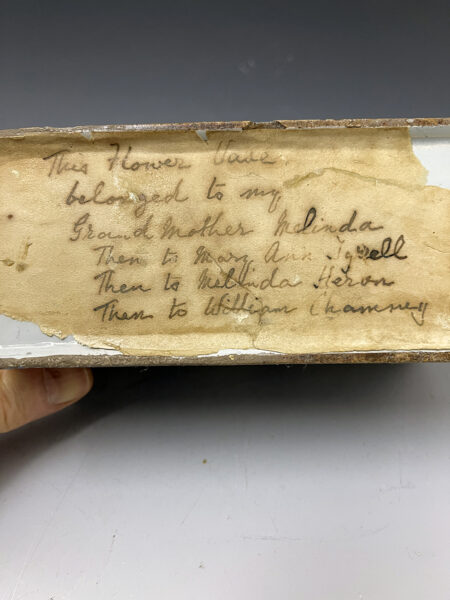 This Flower Vase.
belonged to my
Grand Mother Melinda
Then to Mary Ann Tyrell
Then to Mellinda Heron
Then to William Chamney